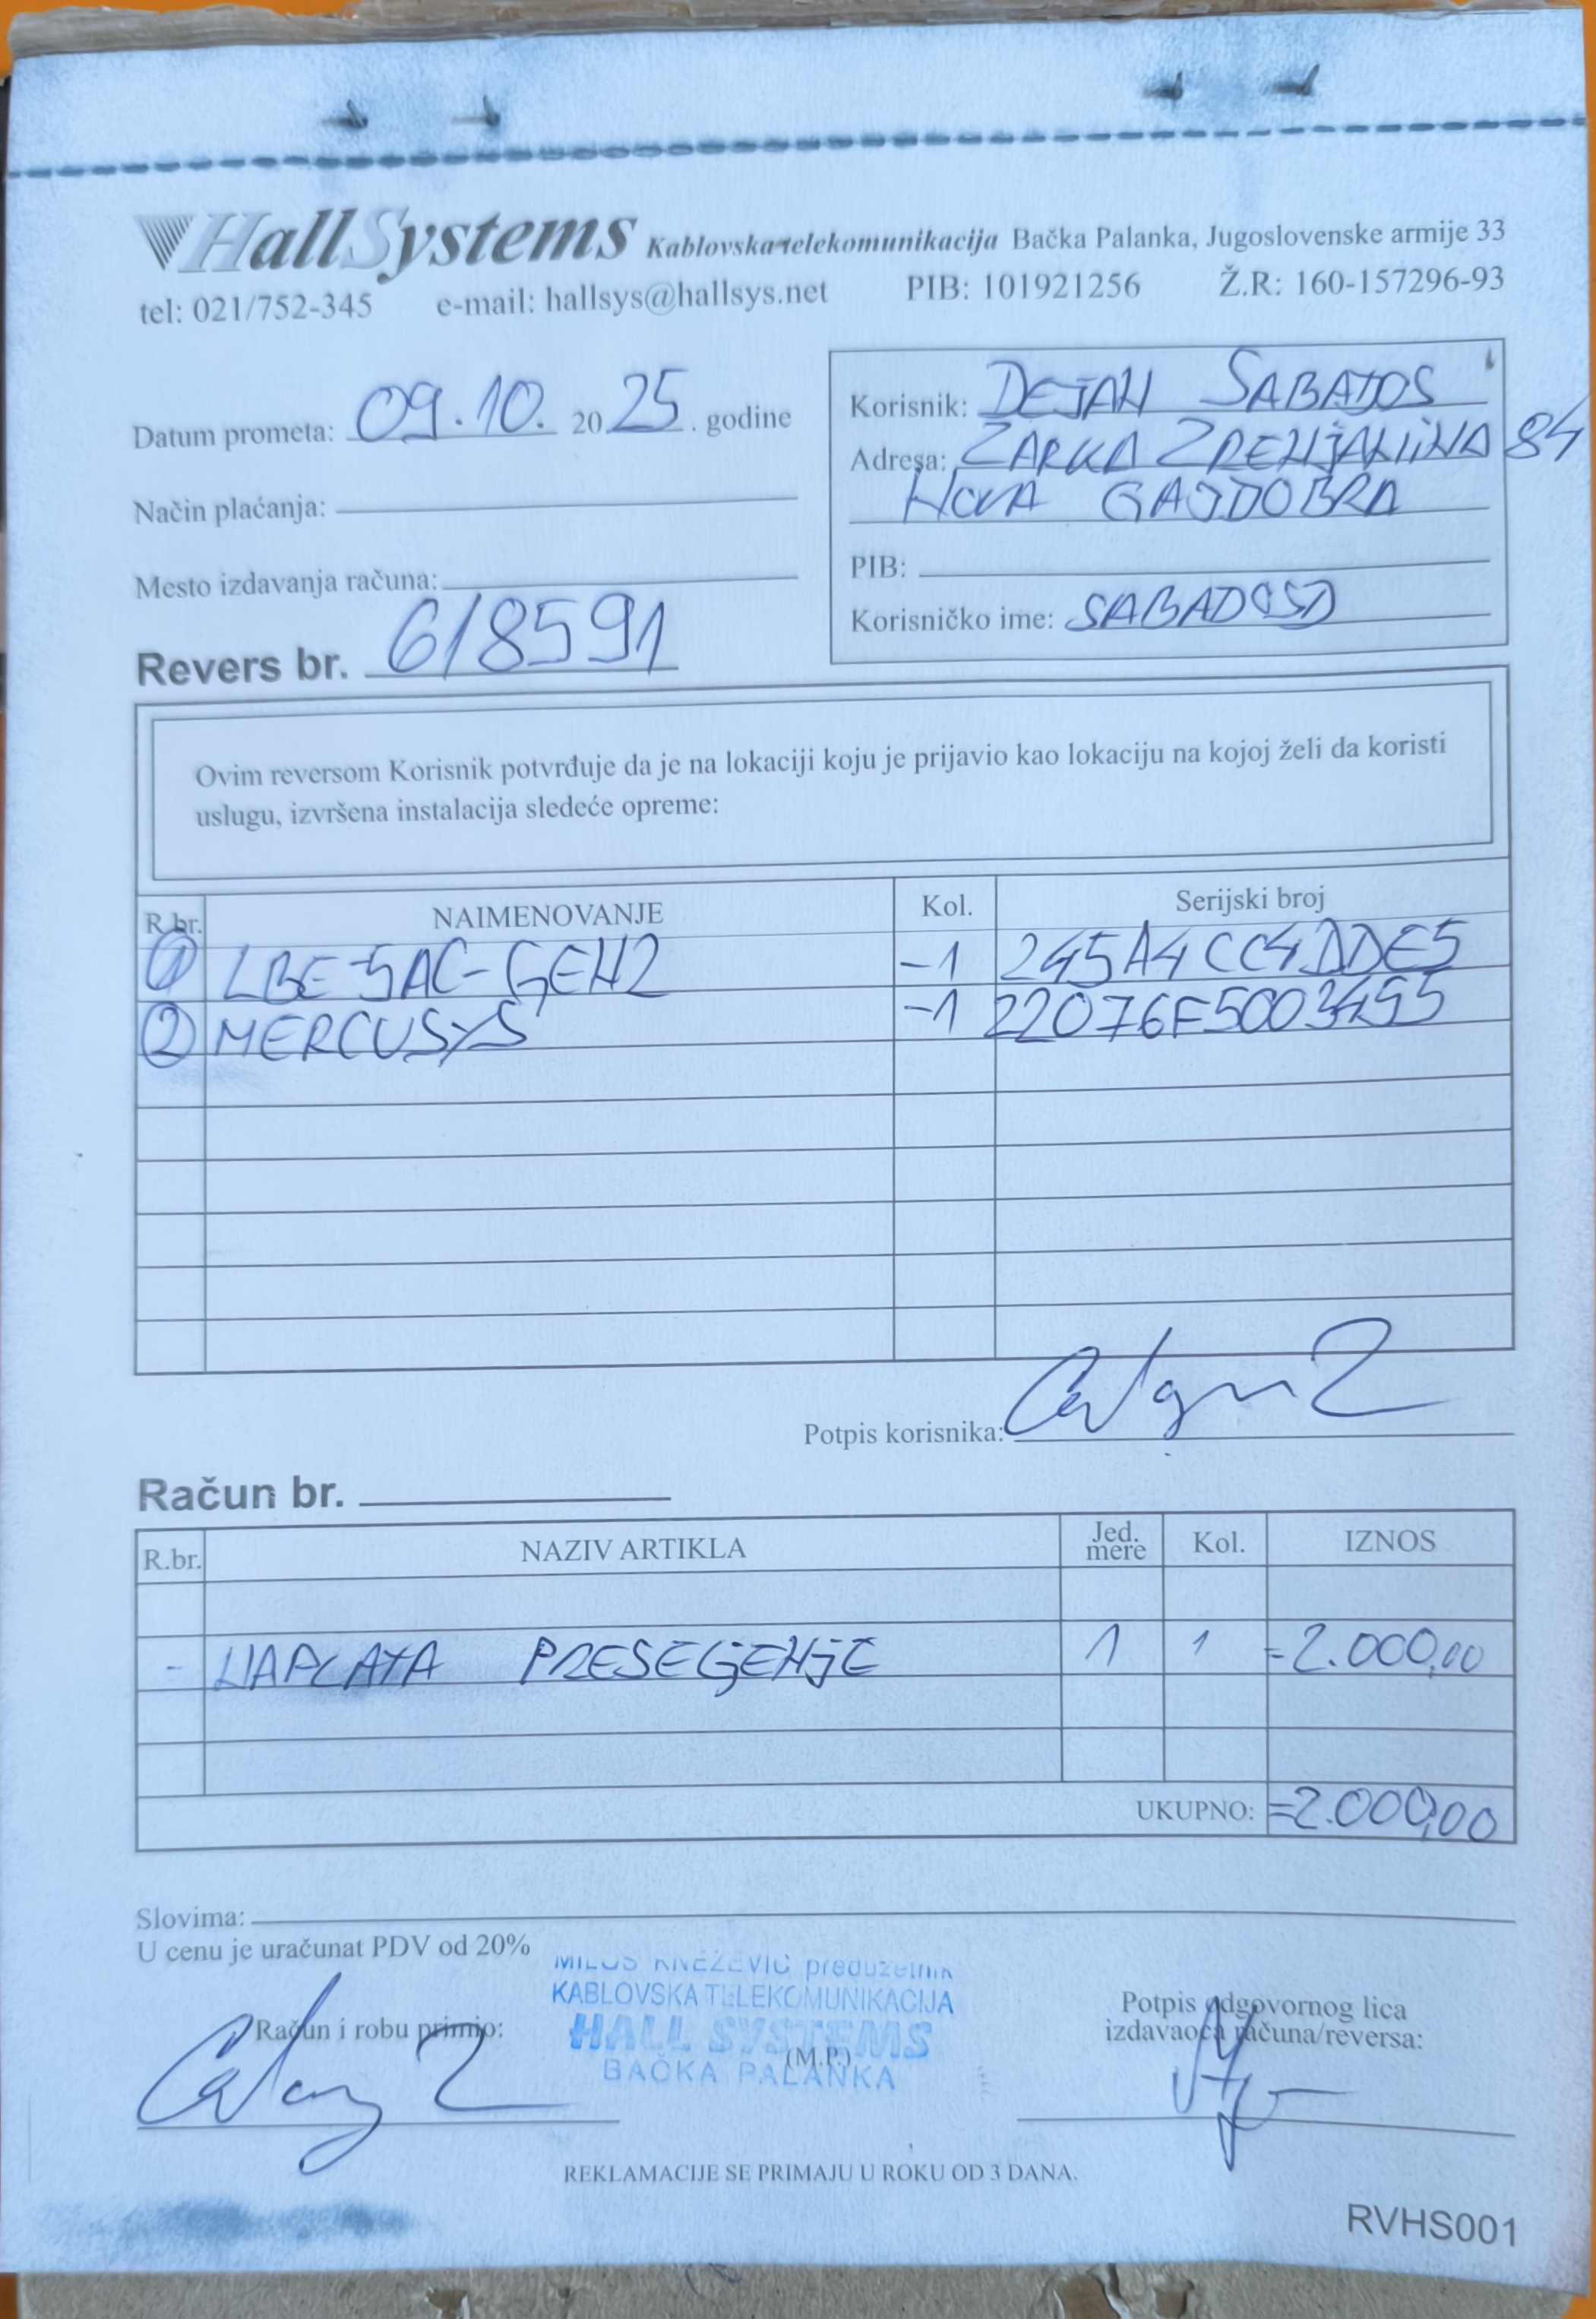 HallSystems Kablovska telekomunikacija Bačka Palanka, Jugoslovenske armije 33
tel: 021/752-345 e-mail: hallsys@hallsys.net PIB: 101921256 Ž.R: 160-157296-93
Datum prometa: 09.10. 2025. godine
Način plaćanja:
Mesto izdavanja računa:
Revers br. 6/8591
Korisnik: DEJAN SABADOS
Adresa: ZARKA ZRENJANINA 84
NOVA GAJDOBRA
PIB:
Korisničko ime: SABADOSD
Ovim reversom Korisnik potvrđuje da je na lokaciji koju je prijavio kao lokaciju na kojoj želi da koristi
uslugu, izvršena instalacija sledeće opreme:
R.br. NAIMENOVANJE Kol. Serijski broj
1 LBE-5AC-GEN2 -1 245A4CC4DDE5
2 MERCUSYS -1 22076F5003455
Potpis korisnika:
Račun br.
R.br. NAZIV ARTIKLA Jed. mere Kol. IZNOS
- NAPLATA PRESEGJENJE 1 1 =2.000,00
UKUPNO: =2.000,00
Slovima:
U cenu je uračunat PDV od 20%
MILOŠ KNEŽEVIĆ preduzetnik
KABLOVSKA TELEKOMUNIKACIJA
HALL SYSTEMS
BAČKA PALANKA
Račun i robu primio:
(M.P.)
Potpis odgovornog lica
izdavaoca računa/reversa:
REKLAMACIJE SE PRIMAJU U ROKU OD 3 DANA.
RVHS001